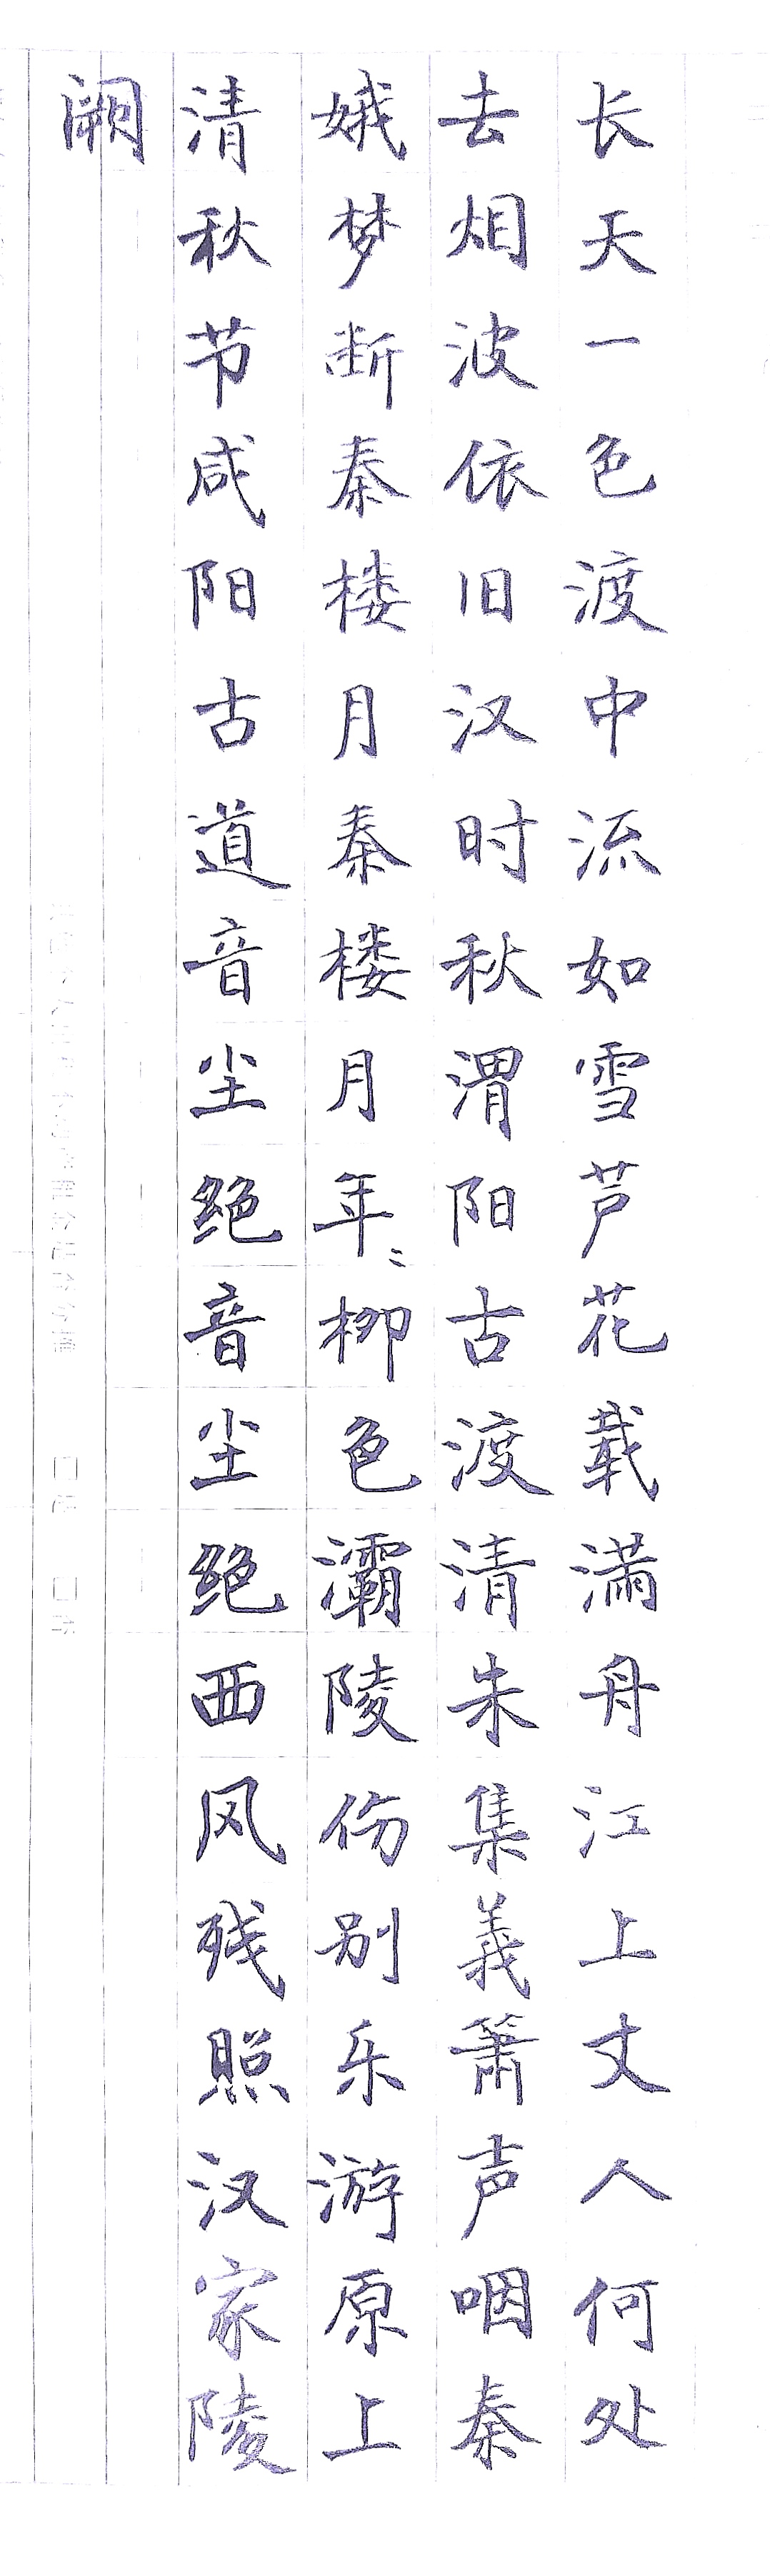 长天一色渡中流如雪芦花载满舟江上丈人何处
去烟波依旧汉时秋渭阳古渡清朱集義箫声咽秦
娥梦断秦楼月秦楼月年〻柳色灞陵伤别乐游原上
清秋节咸阳古道音尘绝音尘绝西风残照汉家陵
阙